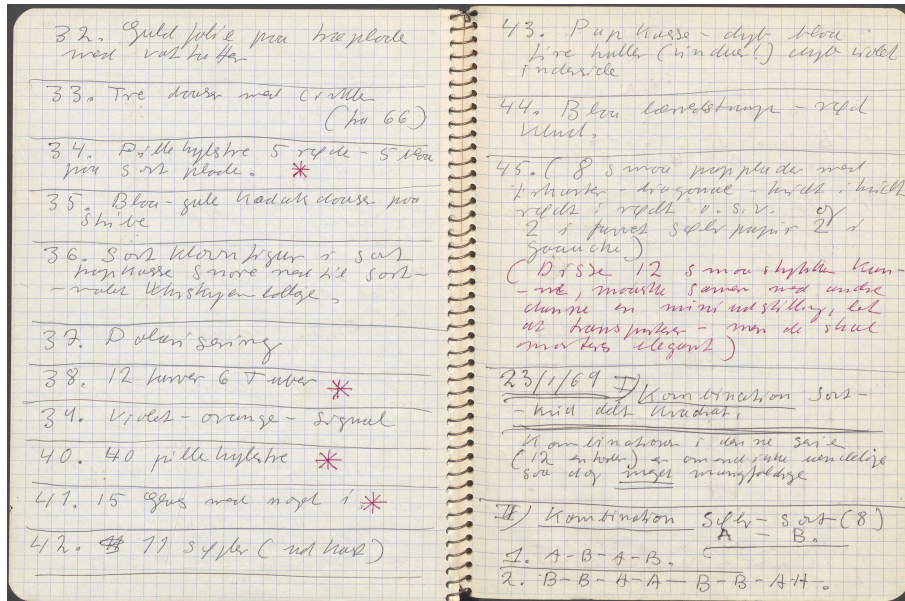 32. Guld folie paa træplade
med vat
33. Tre daaser med
(fra 66)
34. Pillehylstre 5 røde - 5 blaa
paa sort plade. *
35. Blaa - gule Kodak daaser paa
skive
36. Sort Klovnfigur i sort
papkasse snore ned til sort-
-malet Whisky
37. Polarisering
38. 12 farver 6 Tuber *
39. Violet - orange - Signal
40. 40 pillehylstre *
41. 15 Glas med noget i *
42. 11 søjler (udkast)
43. Pap Kasse - dyb blaa
fire huller (vinduer!) dyb violet
inderside
44. Blaa - rød
45. ( 8 smaa papplader med
firkanter - diagonale - hvidt i hvidt
rødt i rødt o.s.v. og
2 i farvet sølvpapir 2 i
gouache)
( Disse 12 smaa stykker kun-
-ne, maaske sammen med andre
danne en miniudstilling, let
at transportere - men de skal
monteres elegant )
23/1/69 I) Kombination Sort-
- delt Kvadrat.
Kombinationen i denne serie
(12 enheder) er omend ikke uendelige
saa dog meget mangfoldige
II) Kombination Sølv - Sort (8)
A - B.
1. A-B-A-B.
2. B-B-A-A- B-B-A-A.